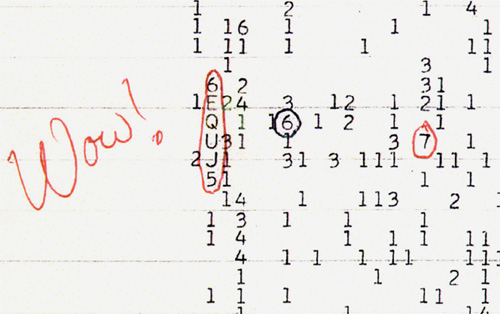 1 2 1 4
1 16 1 1 1
1 11 1 1 11
1 3 1
6 2 31
1 E24 3 12 1 21 1
Q 1 16 1 2 1 1
Wow!
U31 1 3 7 1
2J1 31 3 111 11 1
51 1 1
14 1 113 2 1
1 3 1 1 1
1 4 1 1 1 11
4 1 1 1 11 111
1 1 2 1
1 1 1 11 1